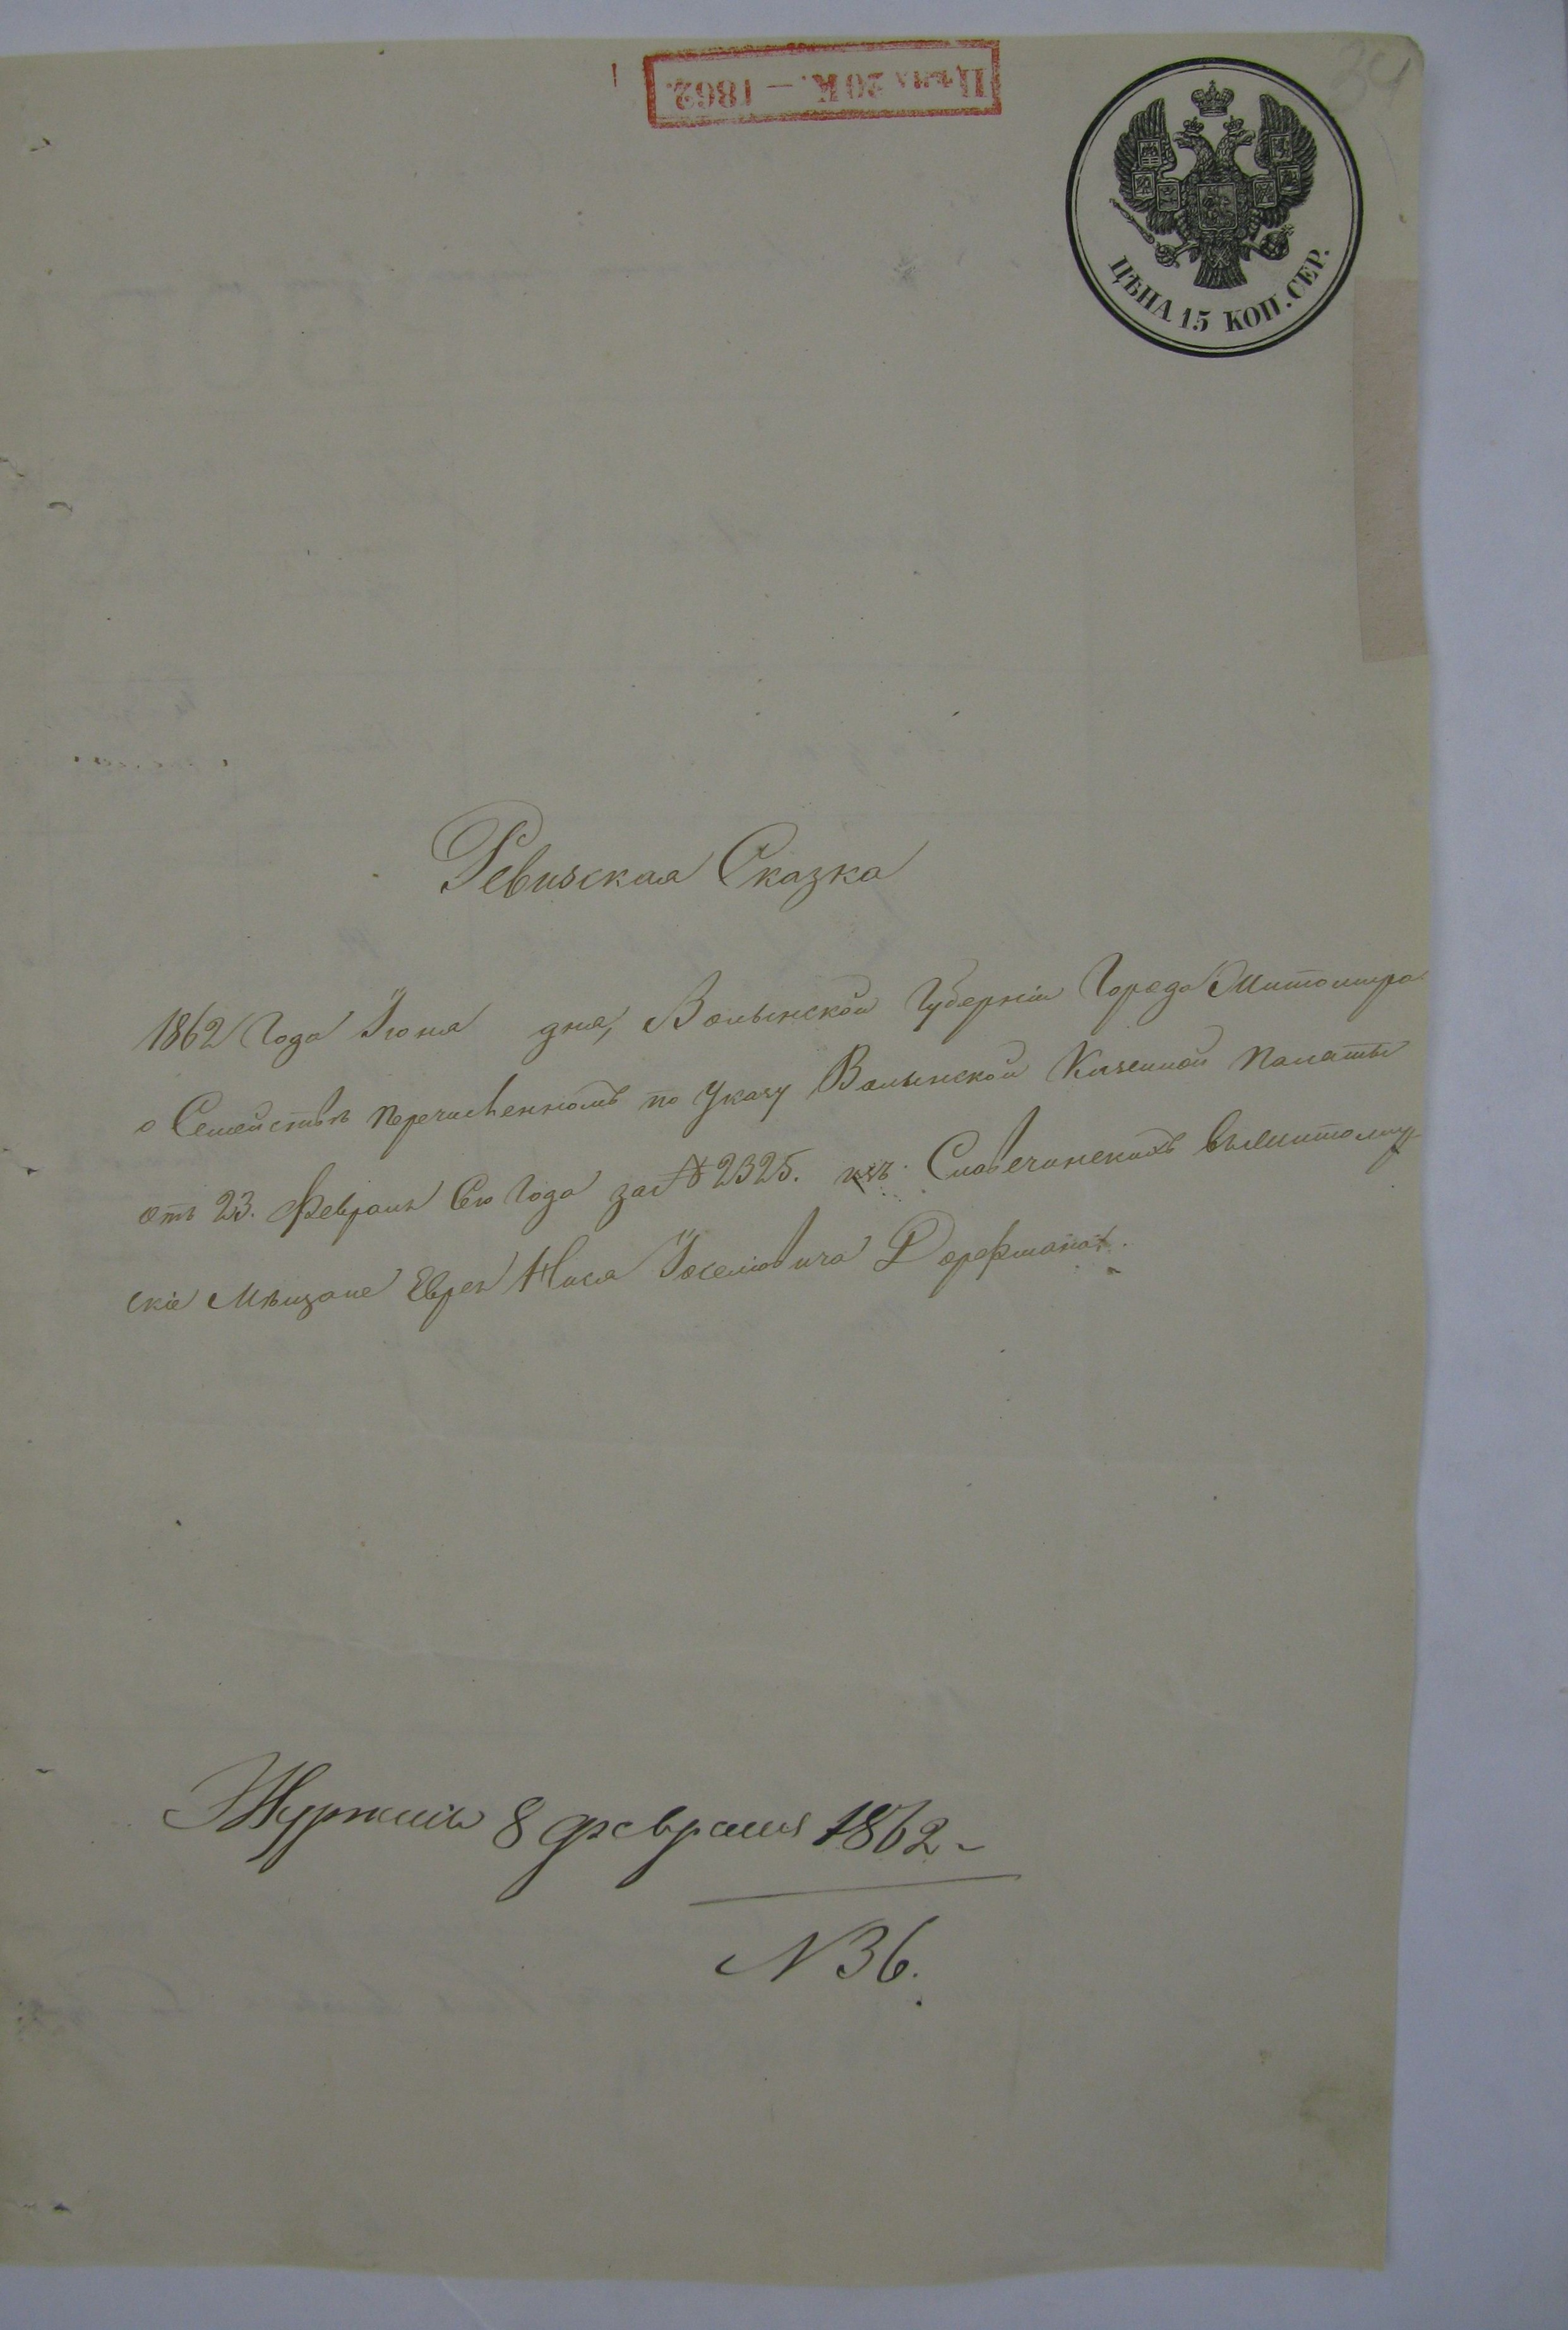 Цѣна 20 К. — 1862.
34
ЦѢНА 15 КОП. СЕР.
Ревизская Сказка
1862 Года Іюня дня, Волынской Губерніи Города Житомира
о Семействѣ перечисленномъ по Указу Волынской Казенной Палаты
отъ 23. Февраля Сего Года за № 2325. изъ Словечинскихъ въ Житомир-
скіе Мѣщане Еврея Іоселіовича Дорфмана.
Журналъ 8 февраля 1862
N 36.